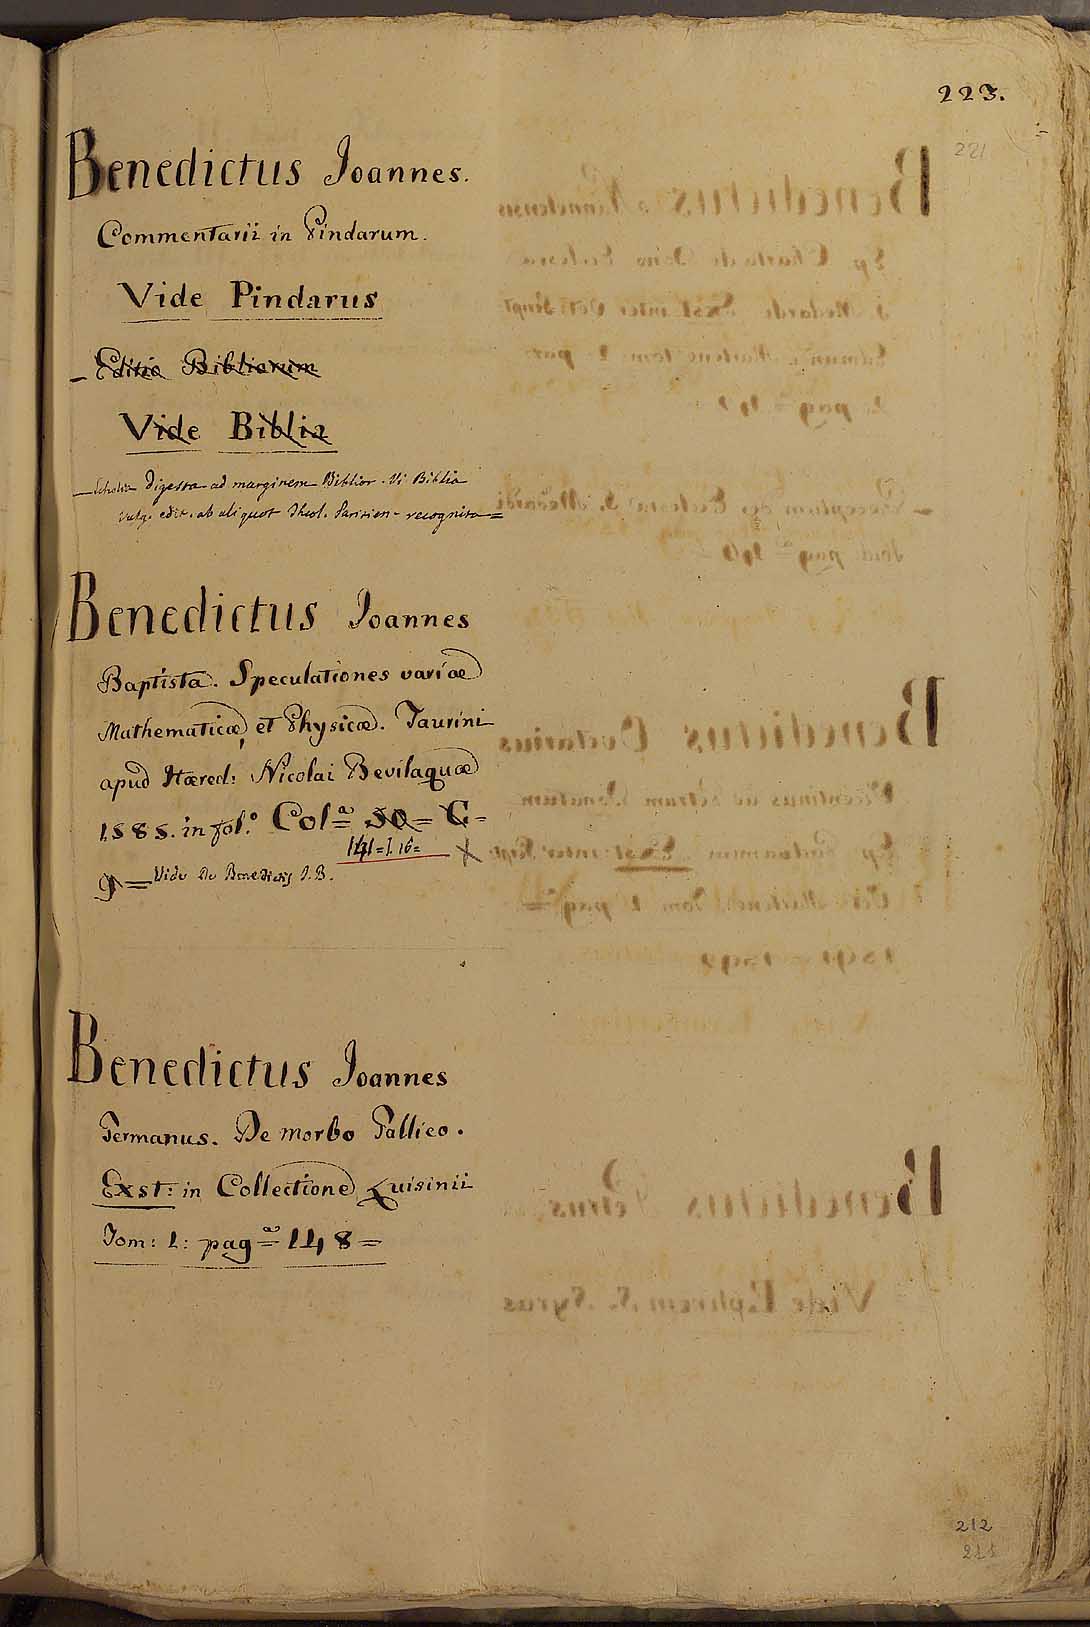 223.
221
Benedictus Joannes.
Commentarii in Pindarum.
Vide Pindarus
_ Editio Bibliorum
Vide Biblia
_ Scholia Digesta ad marginem Biblior. Vi Biblia
Vulg. edit. ab aliquot Theol. Parisien. recognita =
Benedictus Joannes
Baptista. Speculationes variæ
Mathematicæ, et Physicæ. Taurini
apud Hæred: Nicolai Bevilaquæ
1585. in fol.º Col.ª 50 = C =
141 = I. 16 =
9 = Vide De Benedictis J.B.
Benedictus Joannes
Germanus. De morbo Gallico.
Exst: in Collectione Luisinii
Tom: 1: pag.ª 148 =
212